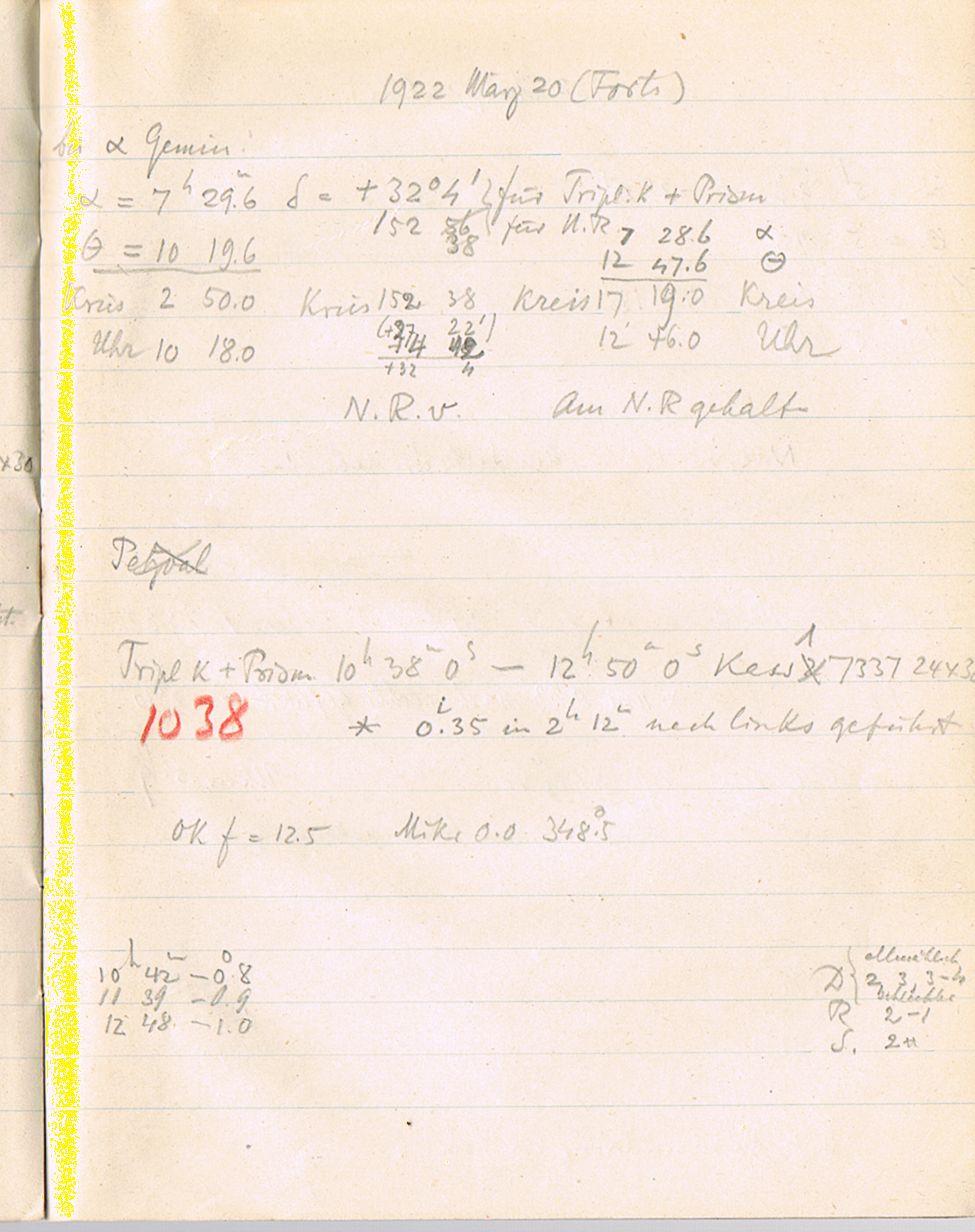 1922 März 20 (Forts)
bei α Gemin.
α = 7ʰ 29ᵐ.6 δ = +32° 4' für Tripl. K + Prism
152 38 für N.R. 7 28.6 α
θ = 10 19.6 12 47.6 θ
Kreis 2 50.0 Kreis 152 38 Kreis 17 19.0 Kreis
(+27 22')
Uhr 10 18.0 +4 42 12 46.0 Uhr
+32 4
N.R.v. Am N.R gehalten
Petzval
Tripl K + Prism. 10ʰ 38ᵐ 0ˢ — 12ʰ 50ᵐ 0ˢ Kass 1 7337 24×30
1038 * 0.35 in 2ʰ 12ᵐ nach links geführt
OK f = 12.5 Mikr 0.0 348.5
10ʰ 42ᵐ −0°.8
11 39 −0.9
12 48 −1.0
allmählich
D 2, 3, 3-4
schlechter
R 2-1
S. 2